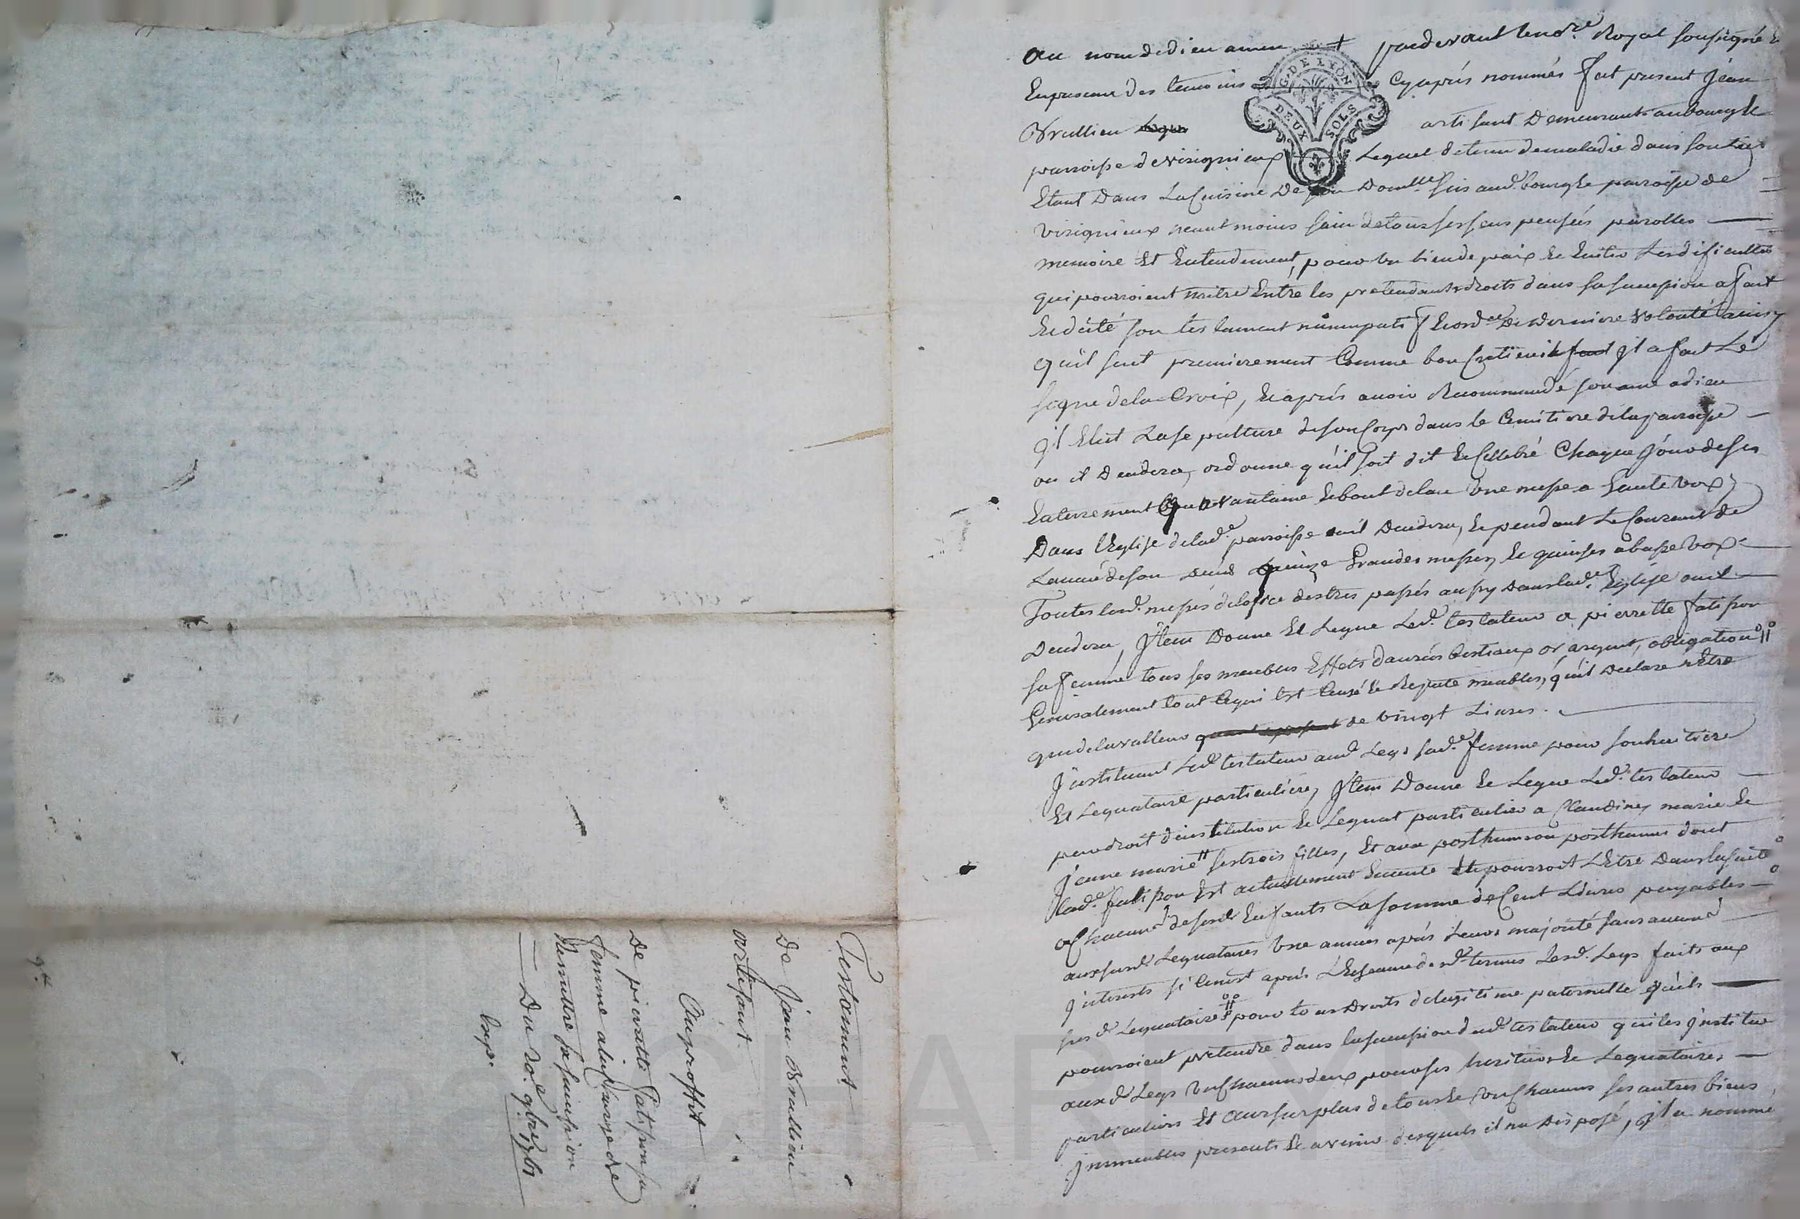 au nom de dieu amen + pardevant le no.re Royal soussigné &
En presence des temoins Cyaprés nommés fut present Jean
Vrullieu artisant Demeurant au bourg &
parroisse de visignieux Lequel detenu de maladie dans son Lit
Etant Dans La Cuisine De son Domlle sis aud. bourg & parroisse de
visignieux neantmoins sain de tous ses sens pensées parolles
memoire Et Entendement, pour un bien de paix & Eviter Les dificultés
qui pourroient naitre Entre les pretendants droits dans sa sucession a fait
& dicté son testament nuncupatif & ord.ce De Derniere volonté ainsy
qu'il suit premierement Comme bon Cretien il a fait Le
signe de la Croix, & aprés avoir Recommandé son ame a dieu
Il Elut La sepulture de son Corps dans le Cimitiere de la parroisse
ou il Deudera, ordonne qu'il soit dit & Cellebré Chaque Jour de ses
Enterrement quarantaine & bout de lan une messe a haute voix
Dans l'Eglise de lad.e parroisse ou il Deudera, & pendant Le Courant de
Lannée de son Deuil quinze Grandes messes & quinses a basse voix
Toutes lesd. messes de lofice des tres passés aussy Dans lad.e Eglise ou il
Deudera, Item Donne Et Legue Led. testateur a pierrette fatisson
sa femme tous ses meubles Effets danrées bestiaux or argent, obligation
Generalement tout Ce qui Est Censé & Reputé meubles, qu'il Declare n'Etre
que de la valleur de vingt Livres.
Instituant Led. testateur aud. Legs sad.e femme pour son heritiere
Et Legataire particuliere, Item Donne & Legue Led. testateur
par droit d'institution & Legat particulier a Claudine, marie &
Jeanne marie ses trois filles, Et aux posthumes ou posthumes dont
lad.e fatisson Est actuellement Enceinte & pourroit L'Etre Dans la suite
a Chacune de sesd. Enfants La somme de Cent Livres payables
auxsusd. Legataires une année aprés Leurs majorité sans aucuns
Interests si Cenest aprés L'Echeance desd. termes Lesd. Legs faits aux
susd. Legataires pour tous Droits de legitime paternelle qu'ils
pourroient pretendre dans la sucession dud. testateur qui les Institue
auxd. Legs un Chacun deux pour ses heritiers & Legataires
particuliers Et au surplus de tous & un Chacuns ses autres biens
Immeubles presents & avenir desquels il n'a Disposé, Il a nommé
G. DE LYON
DEUX SOLS
Testament
De Jean Vrullieu
artisant
Au proffit
De pierrette fatisson sa
femme a la Charge de
Remettre sa sucession
Du 20.e 9bre 1761
Exp.